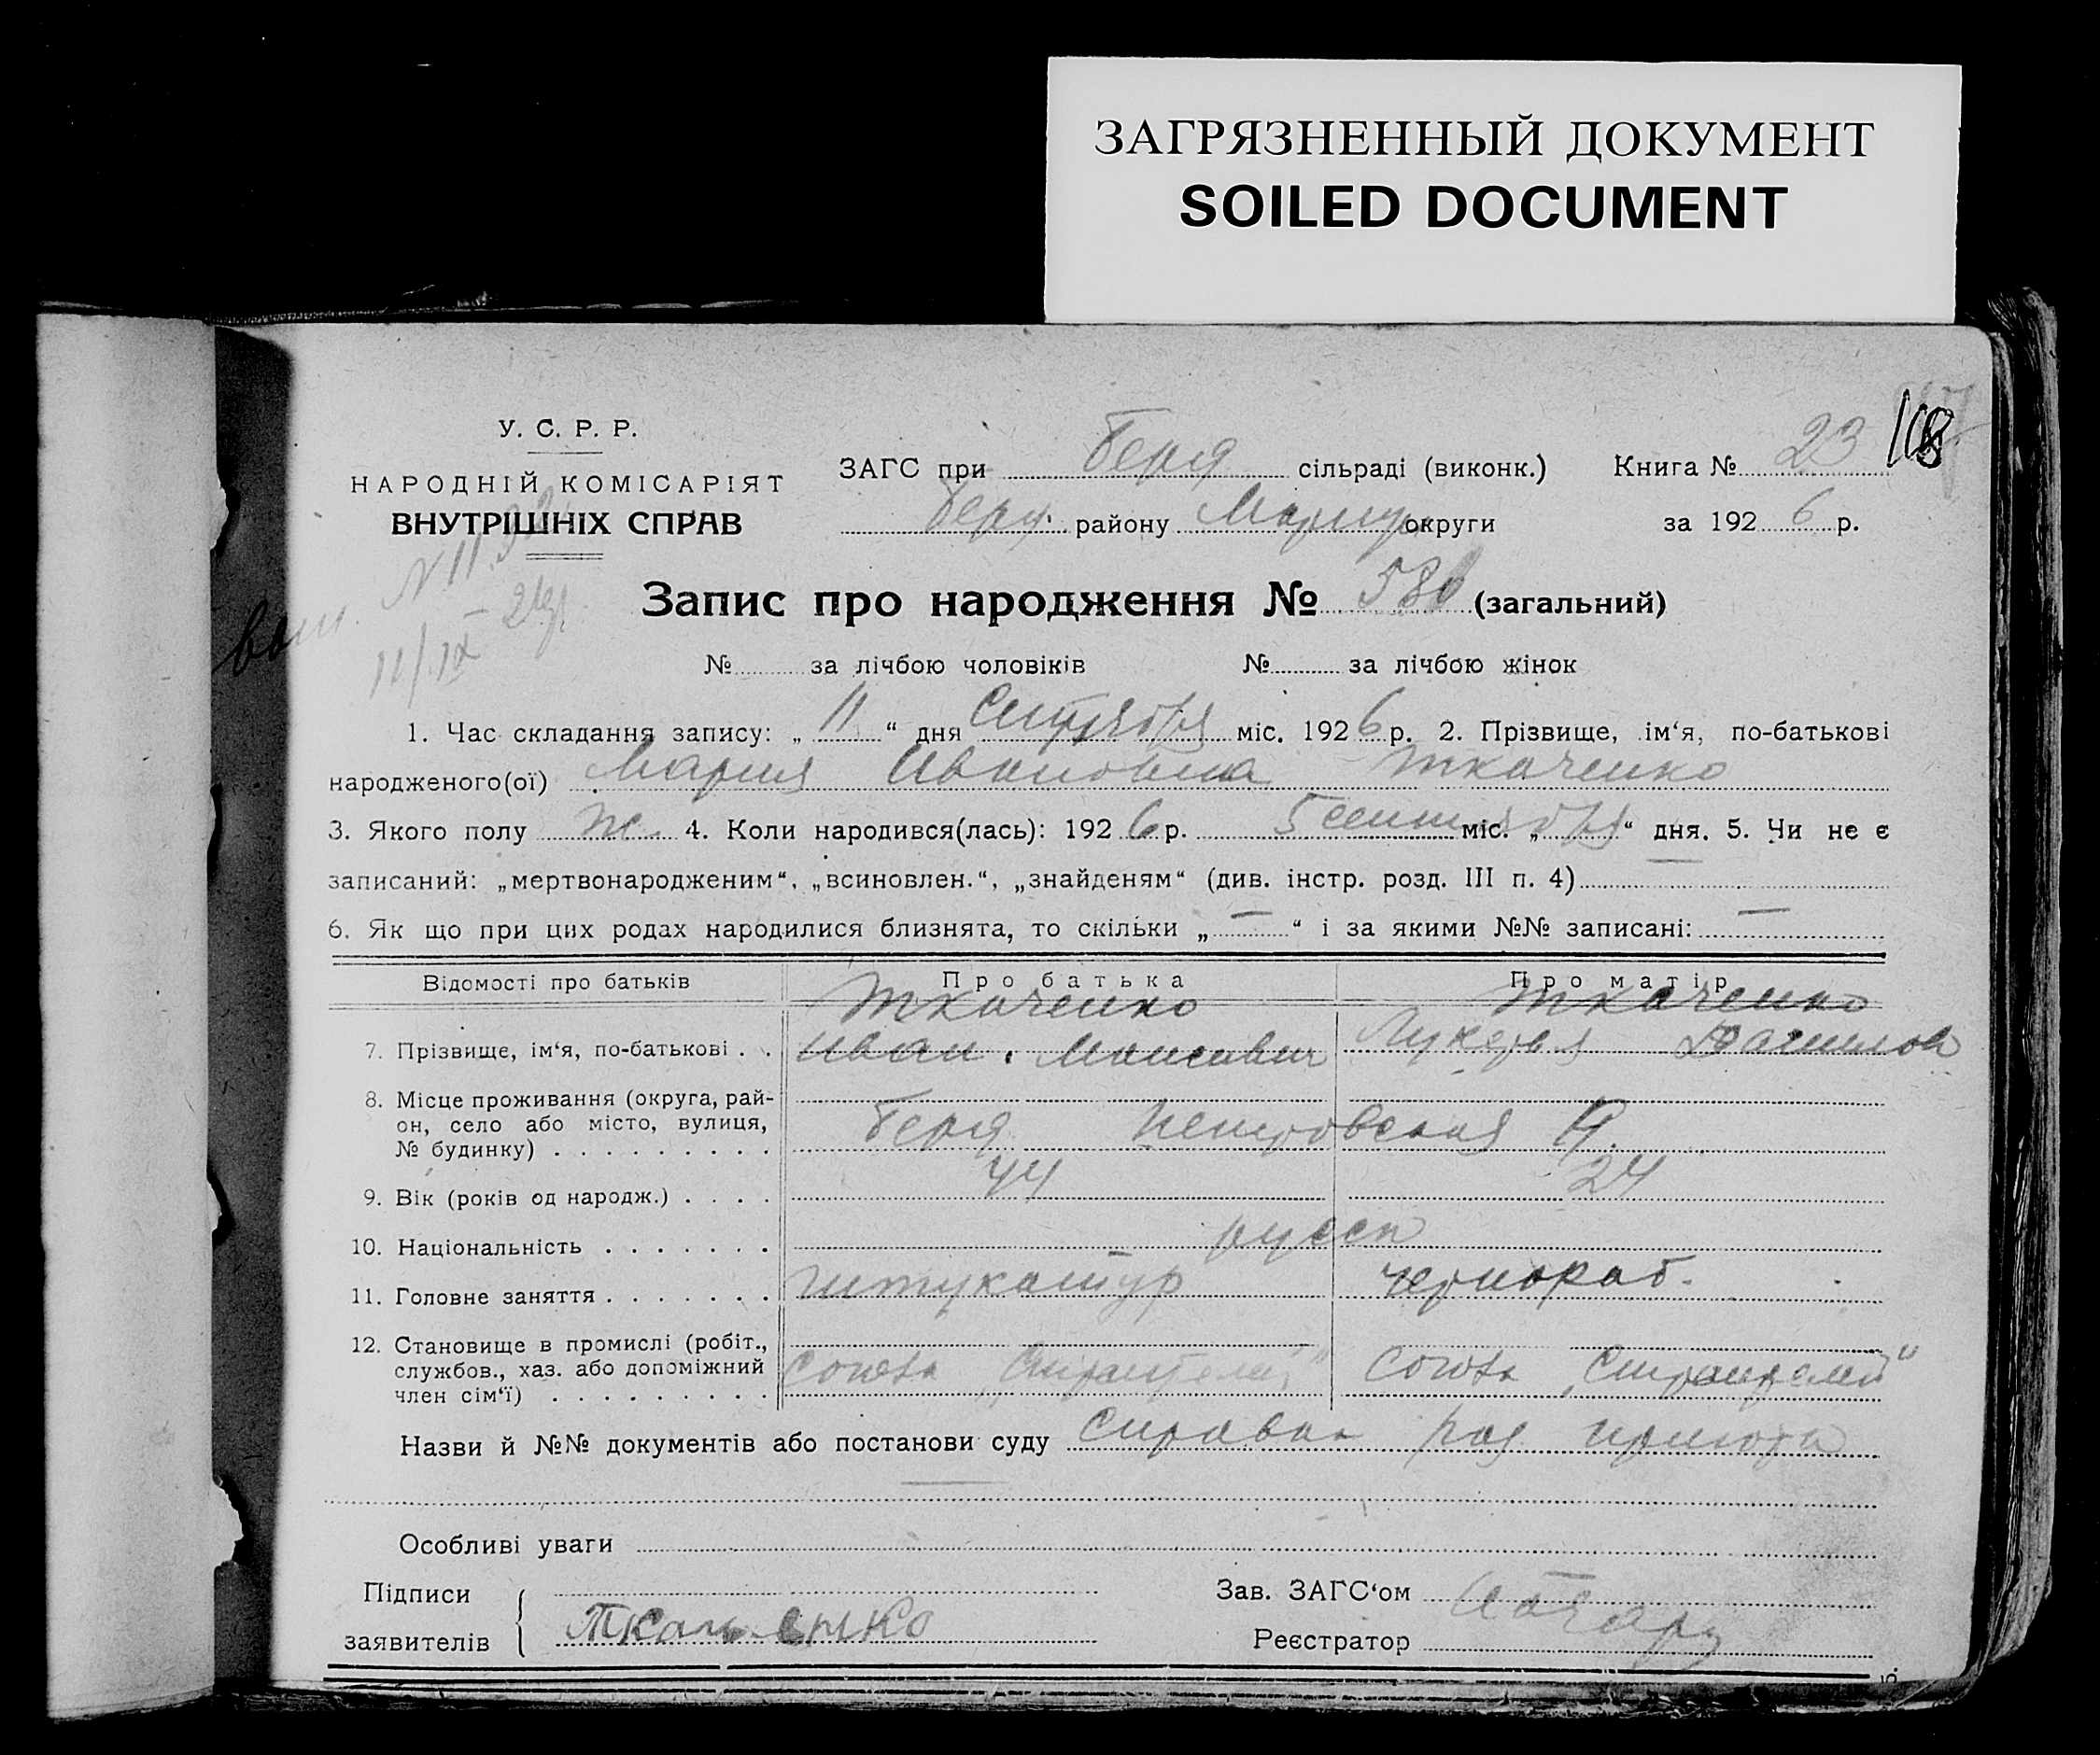 ЗАГРЯЗНЕННЫЙ ДОКУМЕНТ
SOILED DOCUMENT
У. С. Р. Р.
НАРОДНІЙ КОМІСАРІЯТ
ВНУТРІШНІХ СПРАВ
ЗАГС при Берд сільраді (виконк.) Книга № 23
Берд. району Мариуп округи за 1926 р.
Запис про народження № 580 (загальний)
№ за лічбою чоловіків № за лічбою жінок
1. Час складання запису: „ 11 “ дня Сентября міс. 1926 р. 2. Прізвище, ім‘я, по-батькові
народженого(ої) Мария Ивановна Ткаченко
3. Якого полу ж. 4. Коли народився(лась): 1926 р. 5 сентября міс. „ “ дня. 5. Чи не є
записаний: „мертвонародженим“, „всиновлен.“, „знайденям“ (див. інстр. розд. III п. 4)
6. Як що при цих родах народилися близнята, то скільки „ — “ і за якими №№ записані: —
Відомості про батьків Про батька Про матір
Ткаченко Ткаченко
7. Прізвище, ім‘я, по-батькові . . Иван Лукерья
8. Місце проживання (округа, рай-
он, село або місто, вулиця,
№ будинку) . . . . . . . . . Берд Петровская
9. Вік (років од народж.) . . . . 44 24
10. Національність . . . . . . . русск
11. Головне заняття . . . . . . . штукатур чернораб.
12. Становище в промислі (робіт.,
службов., хаз. або допоміжний
член сім‘ї) . . . . . . . . . союза „Строителей“ союза „Строителей“
Назви й №№ документів або постанови суду Справка род приюта
Особливі уваги
Підписи
заявителів Ткаченко
Зав. ЗАГС‘ом
Реєстратор